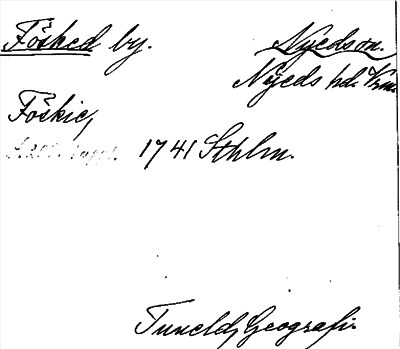 Fösked by. Nyedsn.
Nyeds hd. Vrm.
Föskie,
1741 Sthlm.
Tuneld, Geografi.